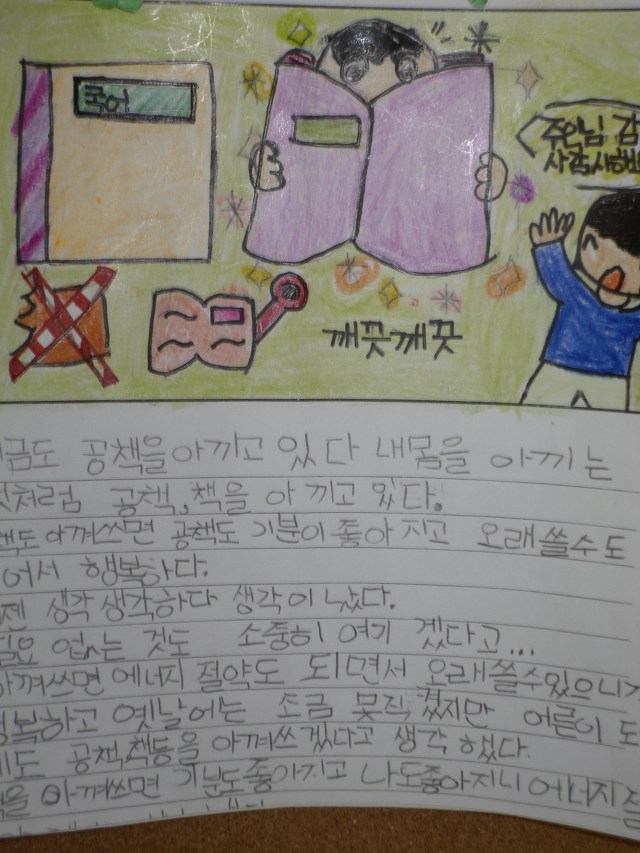 국어
주인님 감
사감사해요
깨끗깨끗
금도 공책을 아끼고 있다 내몸을 아끼는
것처럼 공책,책을 아끼고 있다.
책도 아껴쓰면 공책도 기분이 좋아 지고 오래 쓸수도
어서 행복하다.
젠 생각 생각하다 생각이 났다.
필요 없는 것도 소중히 여기 겠다고...
아껴쓰면 에너지 절약도 되면서 오래 쓸수있으니
행복하고 옛날에는 조금 못직 켰지만 어른이 되
도 공책 책등을 아껴쓰겠다고 생각 했다.
을 아껴쓰면 기분도좋아지고 나도좋아지니 에너지절